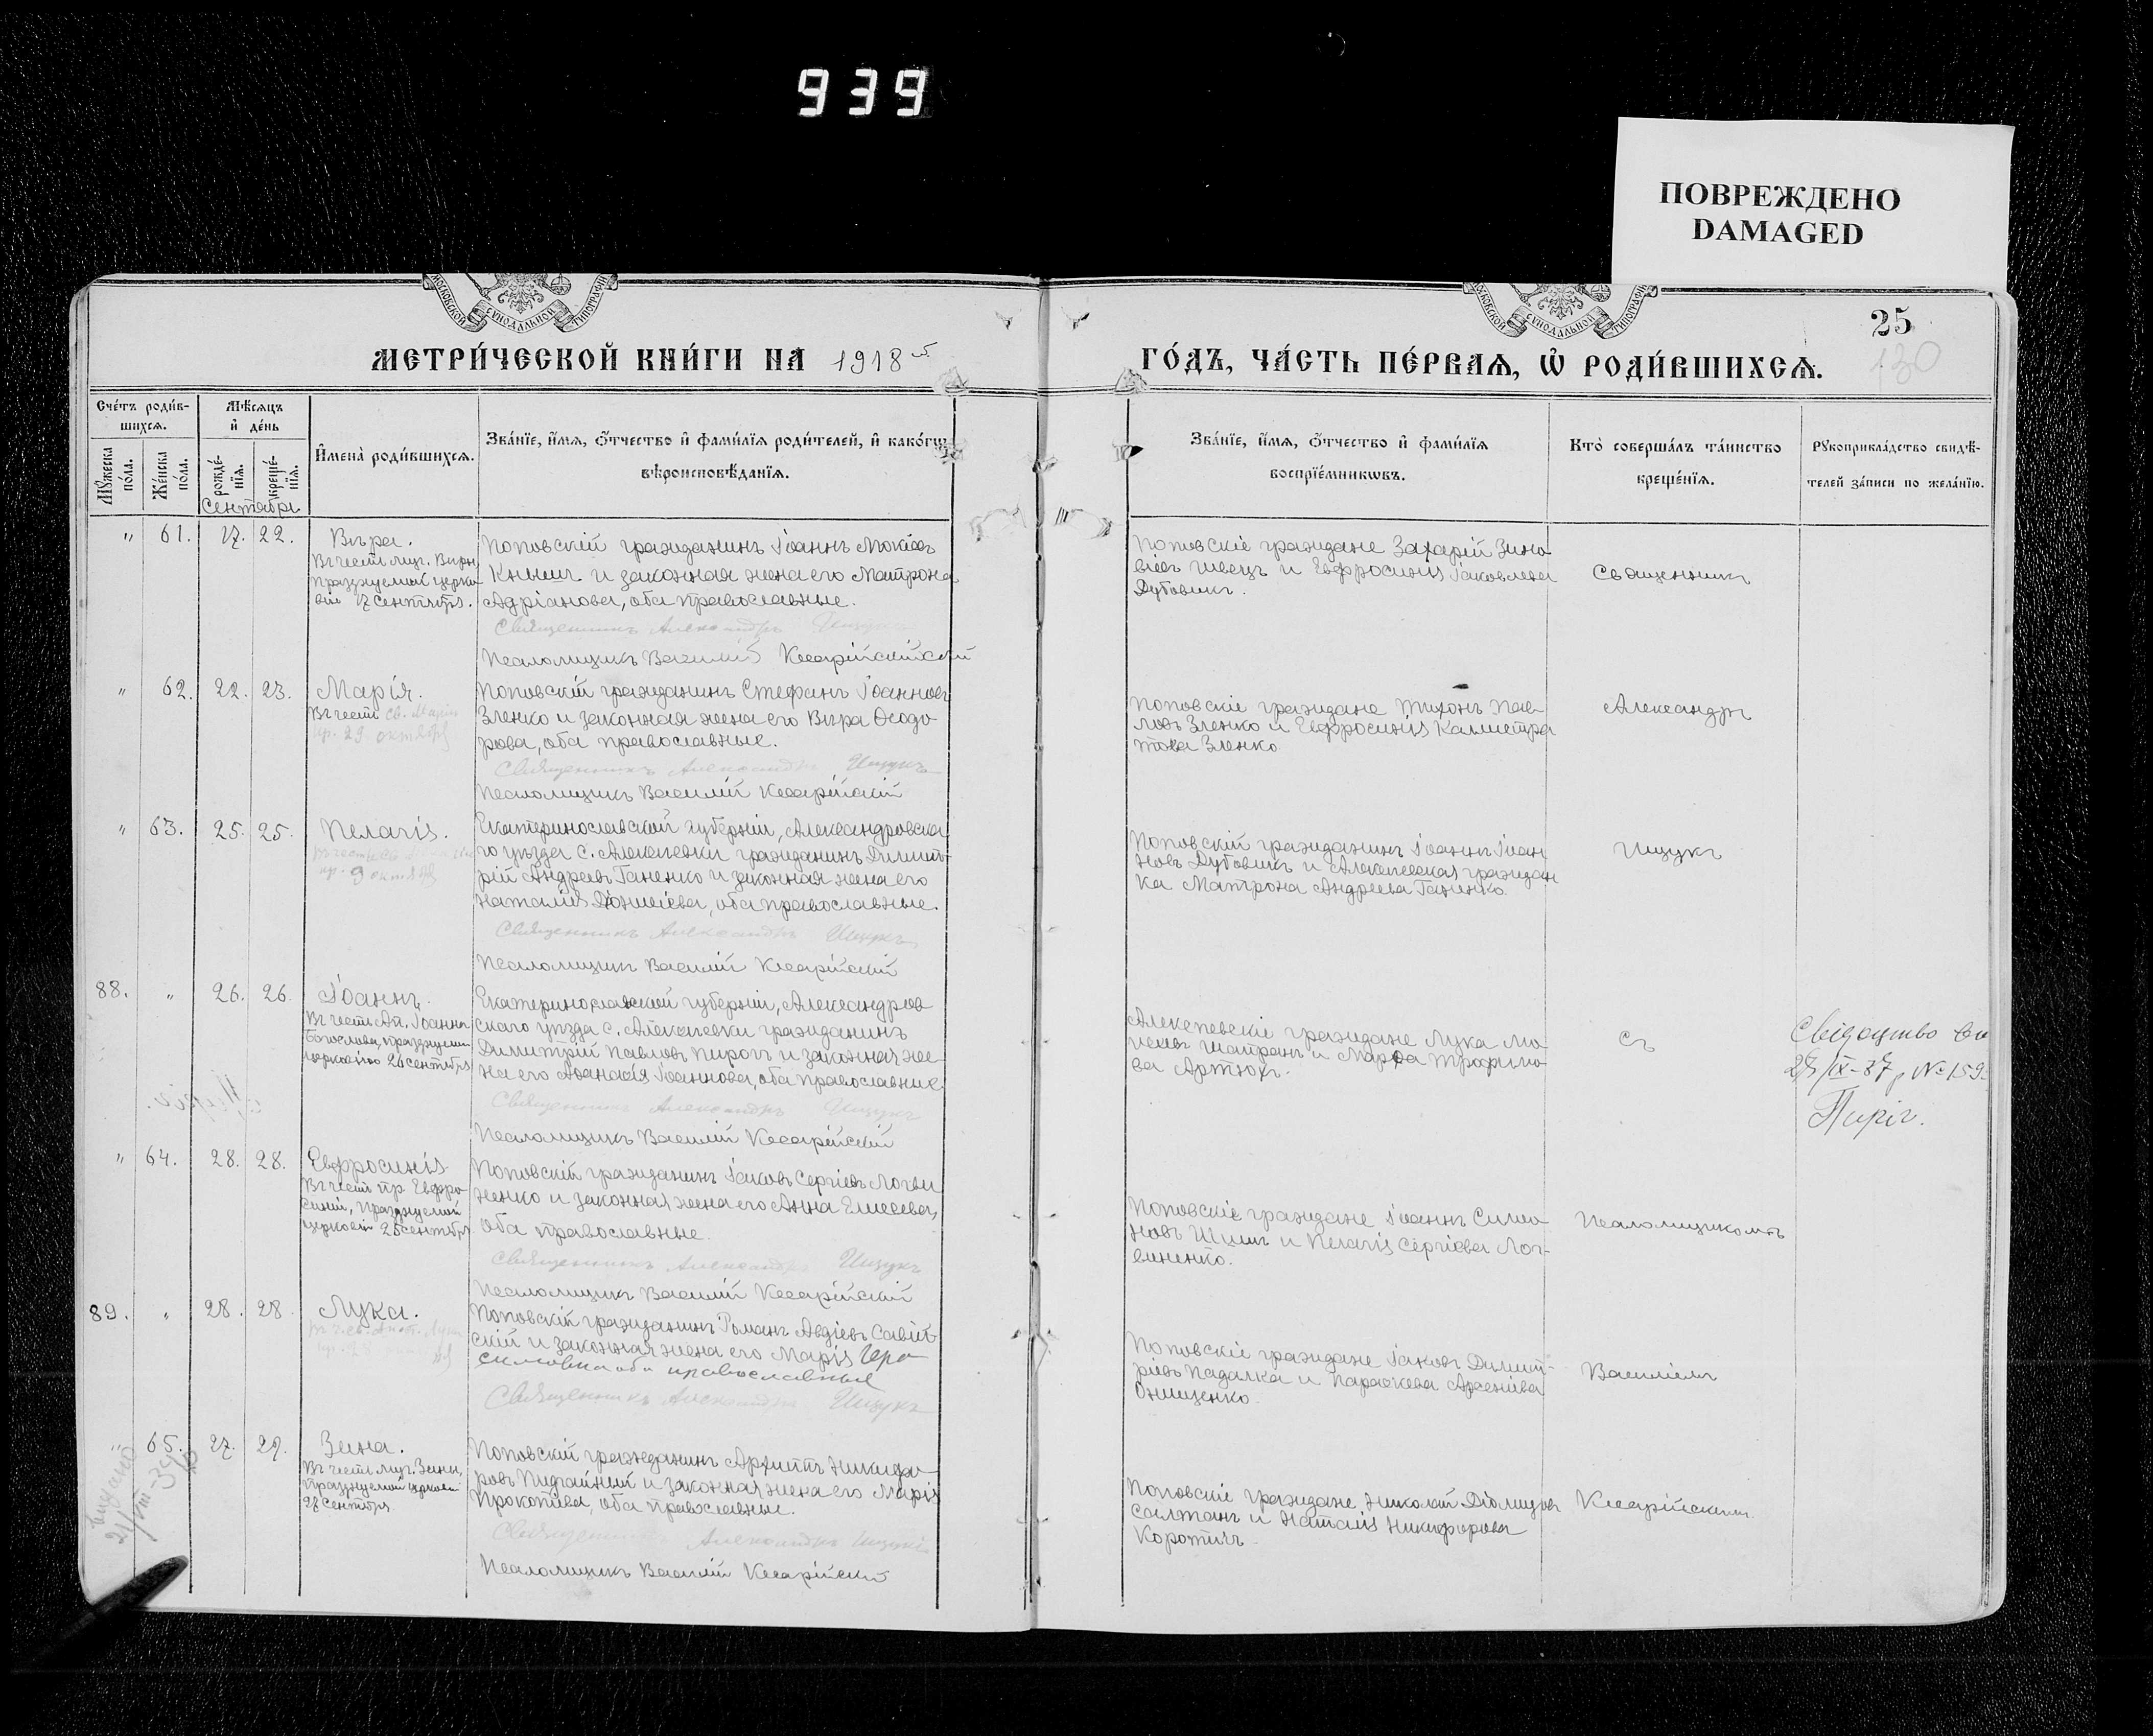 939
ПОВРЕЖДЕНО
DAMAGED
МОСКОВСКОЙ СУНОДАЛЬНОЙ ТИПОГРАФІИ
МОСКОВСКОЙ СУНОДАЛЬНОЙ ТИПОГРАФІИ
25
130
МЕТРИ́ЧЕСКОЙ КНИ́ГИ НА 1918
ГО́ДЪ, ЧА́СТЬ ПЕ́РВАѦ, Ѽ РОДИ́ВШИХСѦ.
Сче́тъ роди́в-
шихсѧ.
Мѣ́сѧцъ
и҆ де́нь
Мꙋ́жеска
по́ла.
Же́нска
по́ла.
рожде́-
нїѧ.
креще́-
нїѧ.
И҆мена̀ роди́вшихсѧ.
Зва́нїе, и҆́мѧ, ѻ҆́тчество и҆ фами́лїѧ роди́телей, и҆ како́гѡ
вѣроисповѣ́данїѧ.
Зва́нїе, и҆́мѧ, ѻ҆́тчество и҆ фами́лїѧ
воспрїе́мникѡвъ.
Кто̀ соверша́лъ та́инство
креще́нїѧ.
Рꙋкоприкла́дство свидѣ́-
телей за́писи по жела́нїю.
Сентября
" 61. 17. 22. Вѣра.
Въ честь муч. Вѣры
празднуемой церко-
вію 17 сентября.
Поповскій гражданинъ Іоаннъ Мокіевъ
Книшъ и законная жена его Матрона
Адріанова, оба православные.
Священникъ Александръ Ищукъ
Псаломщикъ Василій Кесарійскій
Поповскіе граждане Захарій Зино-
віевъ Швецъ и Евфросинія Іаковлева
Дубовикъ.
Священникъ
" 62. 22. 23. Марія.
Въ честь св. Маріи
пр. 29 октября
Поповскій гражданинъ Стефанъ Іоанновъ
Зленко и законная жена его Вѣра Ѳеодо-
рова, оба православные.
Священникъ Александръ Ищукъ
Псаломщикъ Василій Кесарійскій
Поповскіе граждане Тихонъ Пав-
ловъ Зленко и Евфросинія Каллистра-
това Зленко
Александръ
" 63. 25. 25. Пелагія.
пр. 9 октября
Екатеринославской губерніи, Александровска-
го уѣзда с. Алексѣевки гражданинъ Димит-
рій Андреевъ Ганенко и законная жена его
Наталія Діонисіева, оба православные.
Священникъ Александръ Ищукъ
Псаломщикъ Василій Кесарійскій
Поповскій гражданинъ Іоаннъ Іоан-
новъ Дубовикъ и Алексѣевская граждан-
ка Матрона Андреева Ганенко.
Ищукъ
88. " 26. 26. Іоаннъ.
Въ честь Ап. Іоанна
Богослова, празднуем.
церковію 26 сентября
Екатеринославской губерніи, Александров-
скаго уѣзда с. Алексѣевки гражданинъ
Димитрій Павловъ Пирогъ и законная же-
на его Аѳанасія Іоаннова, оба православные.
Священникъ Александръ Ищукъ
Псаломщикъ Василій Кесарійскій
Алексѣевскіе граждане Лука Мо-
исеевъ Шатранъ и Марѳа Трофимо-
ва Артюхъ.
съ
Свідоцтво ви
23/IX-37р №159.
Пиріг.
" 64. 28. 28. Евфросинія
Въ честь пр. Евфро-
синіи, празднуемой
церковію 25 сентября
Поповскій гражданинъ Іаковъ Сергіевъ Логви-
ненко и законная жена его Анна Елисеева,
оба православные.
Священникъ Александръ Ищукъ
Псаломщикъ Василій Кесарійскій
Поповскіе граждане Іоаннъ Симо-
новъ Шишъ и Пелагія Сергіева Лог-
виненко.
Псаломщикомъ
89. " 28. 28. Лука.
Поповскій гражданинъ Романъ Авдіевъ Савій-
скій и законная жена его Марія Гера-
симовна оба православные
Священникъ Александръ Ищукъ
Поповскіе граждане Іаковъ Димит-
ріевъ Падалка и Параскева Арсеніева
Онищенко.
Василіемъ
" 65. 27. 29. Зина.
Въ честь муч. Зины,
празднуемой церковію
28 сентября
Видано
21/VIII-34р
Поповскій гражданинъ Архиппъ Никифо-
ровъ Пидгайный и законная жена его Марія
Прокопіева, оба православные.
Священникъ Александръ Ищукъ
Псаломщикъ Василій Кесарійскій
Поповскіе граждане Николай Діомидовъ
Салтанъ и Наталія Никифорова
Коротичъ.
Кесарійскимъ.